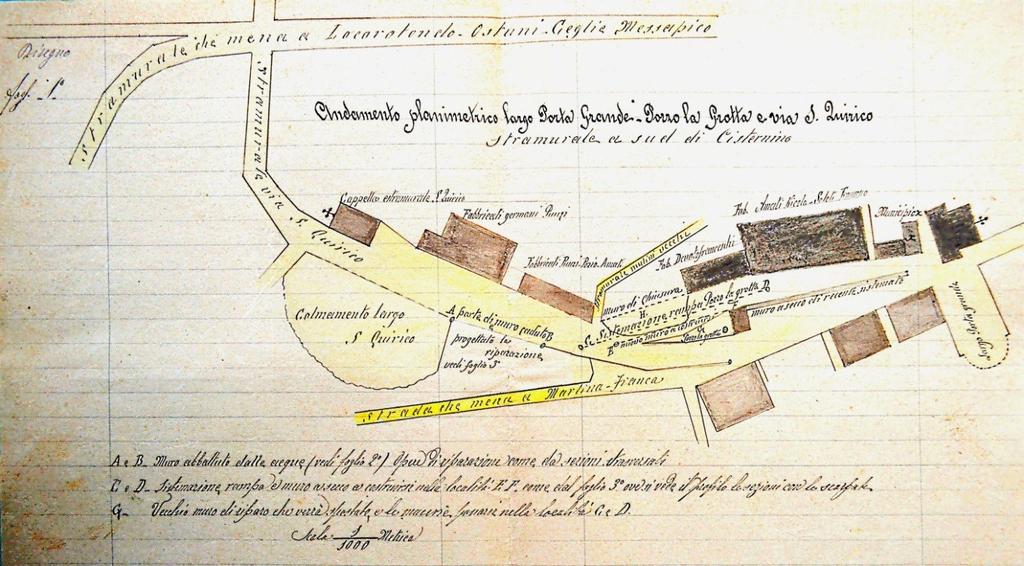 Disegno
fog. 1°
Stramurale che mena a Locorotondo-Ostuni-Ceglie Messapico
Stramurale via S. Quirico
Andamento planimetrico largo Porta Grande-Pozzo la Grotta e via S. Quirico
stramurale a sud di Cisternino
Cappella extramurale S. Quirico
Fabbricati germani Punzi
Fabbricati Punzi-Perio-Amati
Stramurale mulini vecchi
Fab. Devitofranceschi
Fab. Amati Nicola-Soleti
Municipio
largo porta grande
muro di chiusura
H.
Sistemazione rampa Pozzo la grotta D
muro a secco di recente sistemato
E nuovo muro a costruirsi F
G
Colmamento largo
S. Quirico
A parte di muro caduto B
progettata la
riparazione
vedi foglio 3°
Strada che mena a Martina-Franca
A e B- Muro abbattuto dalle acque (vedi foglio 2°) Opere di riparazione come da sezioni trasversali
C e D- Sistemazione rampa e muro a secco a costruirsi nella località E.F. come dal foglio 3° ove si vede il profilo le sezioni con le scarpate
G- Vecchio muro di riparo che verrà spostato e le macerie nella località C e D.
Scala 1/1000 Metrica